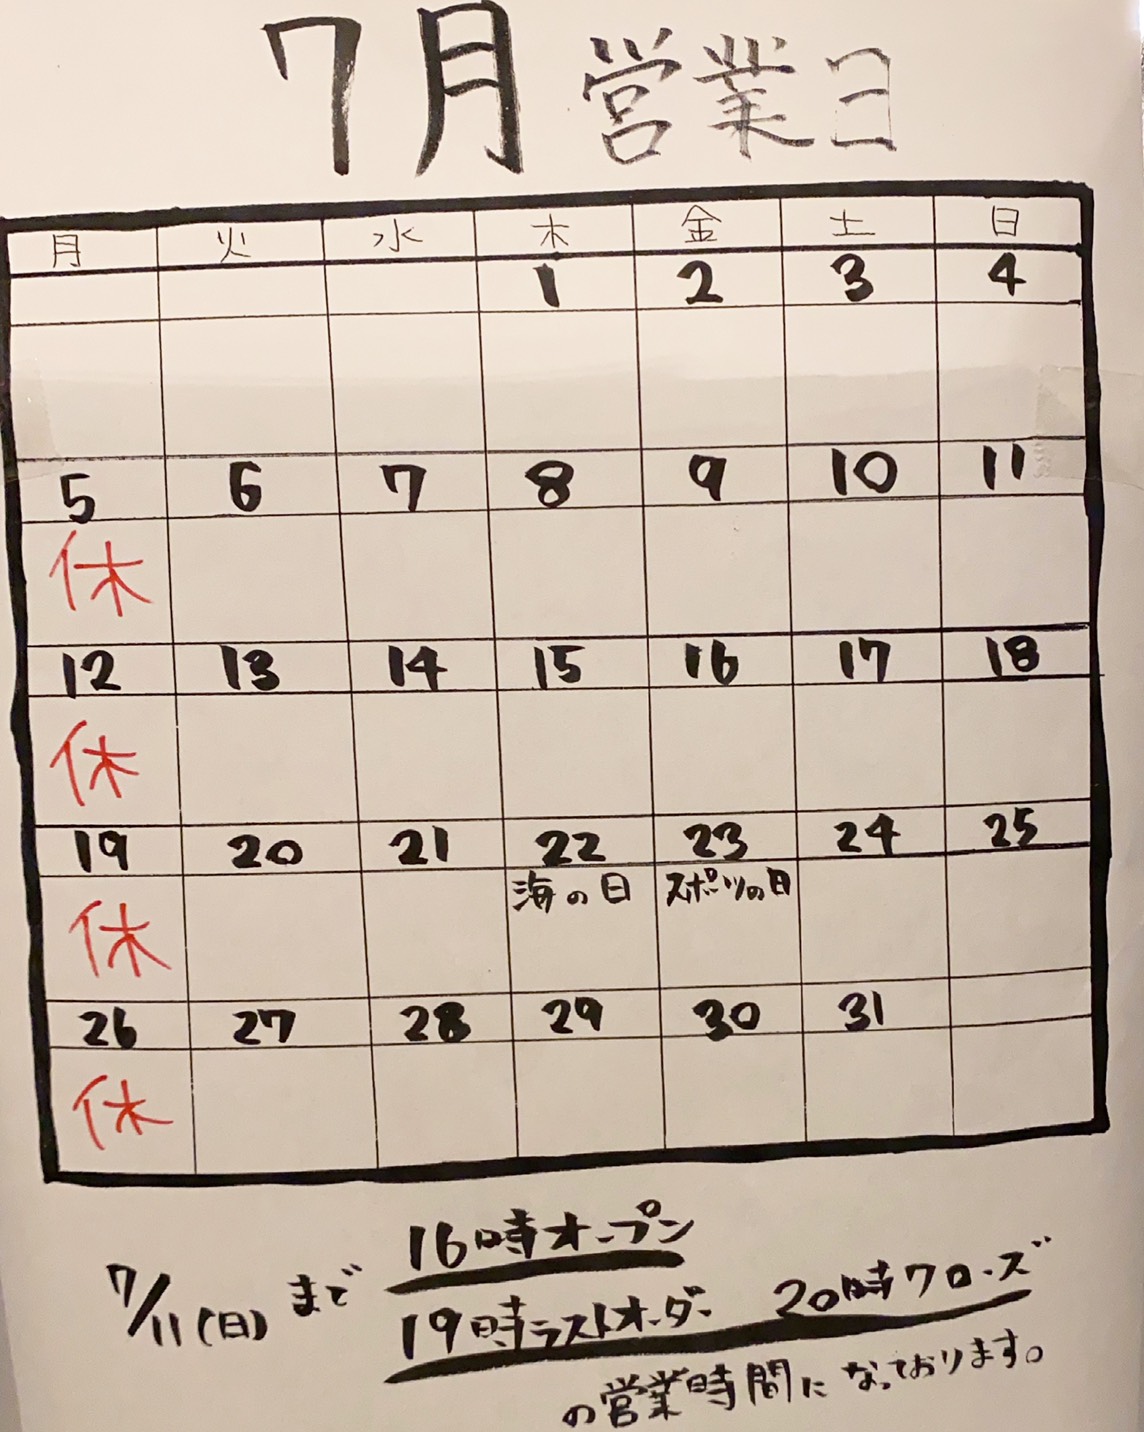 7月 営業日
月 火 水 木 金 土 日
1 2 3 4
5 6 7 8 9 10 11
休
12 13 14 15 16 17 18
休
19 20 21 22 23 24 25
休 海の日 スポーツの日
26 27 28 29 30 31
休
7/11(日)まで 16時オープン
19時ラストオーダー 20時クローズ
の営業時間になっております。